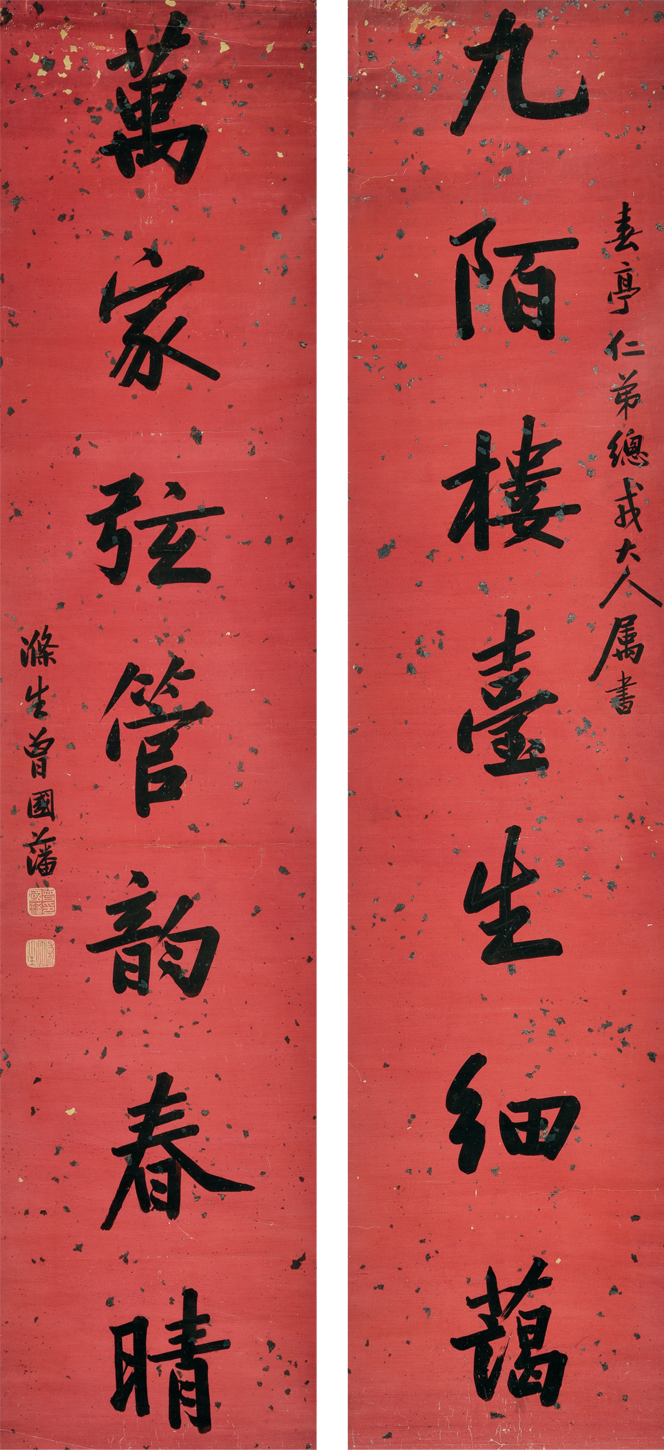 春亭仁弟總戎大人属書
九陌樓臺生細藹
萬家弦管韵春晴
滌生曾國藩